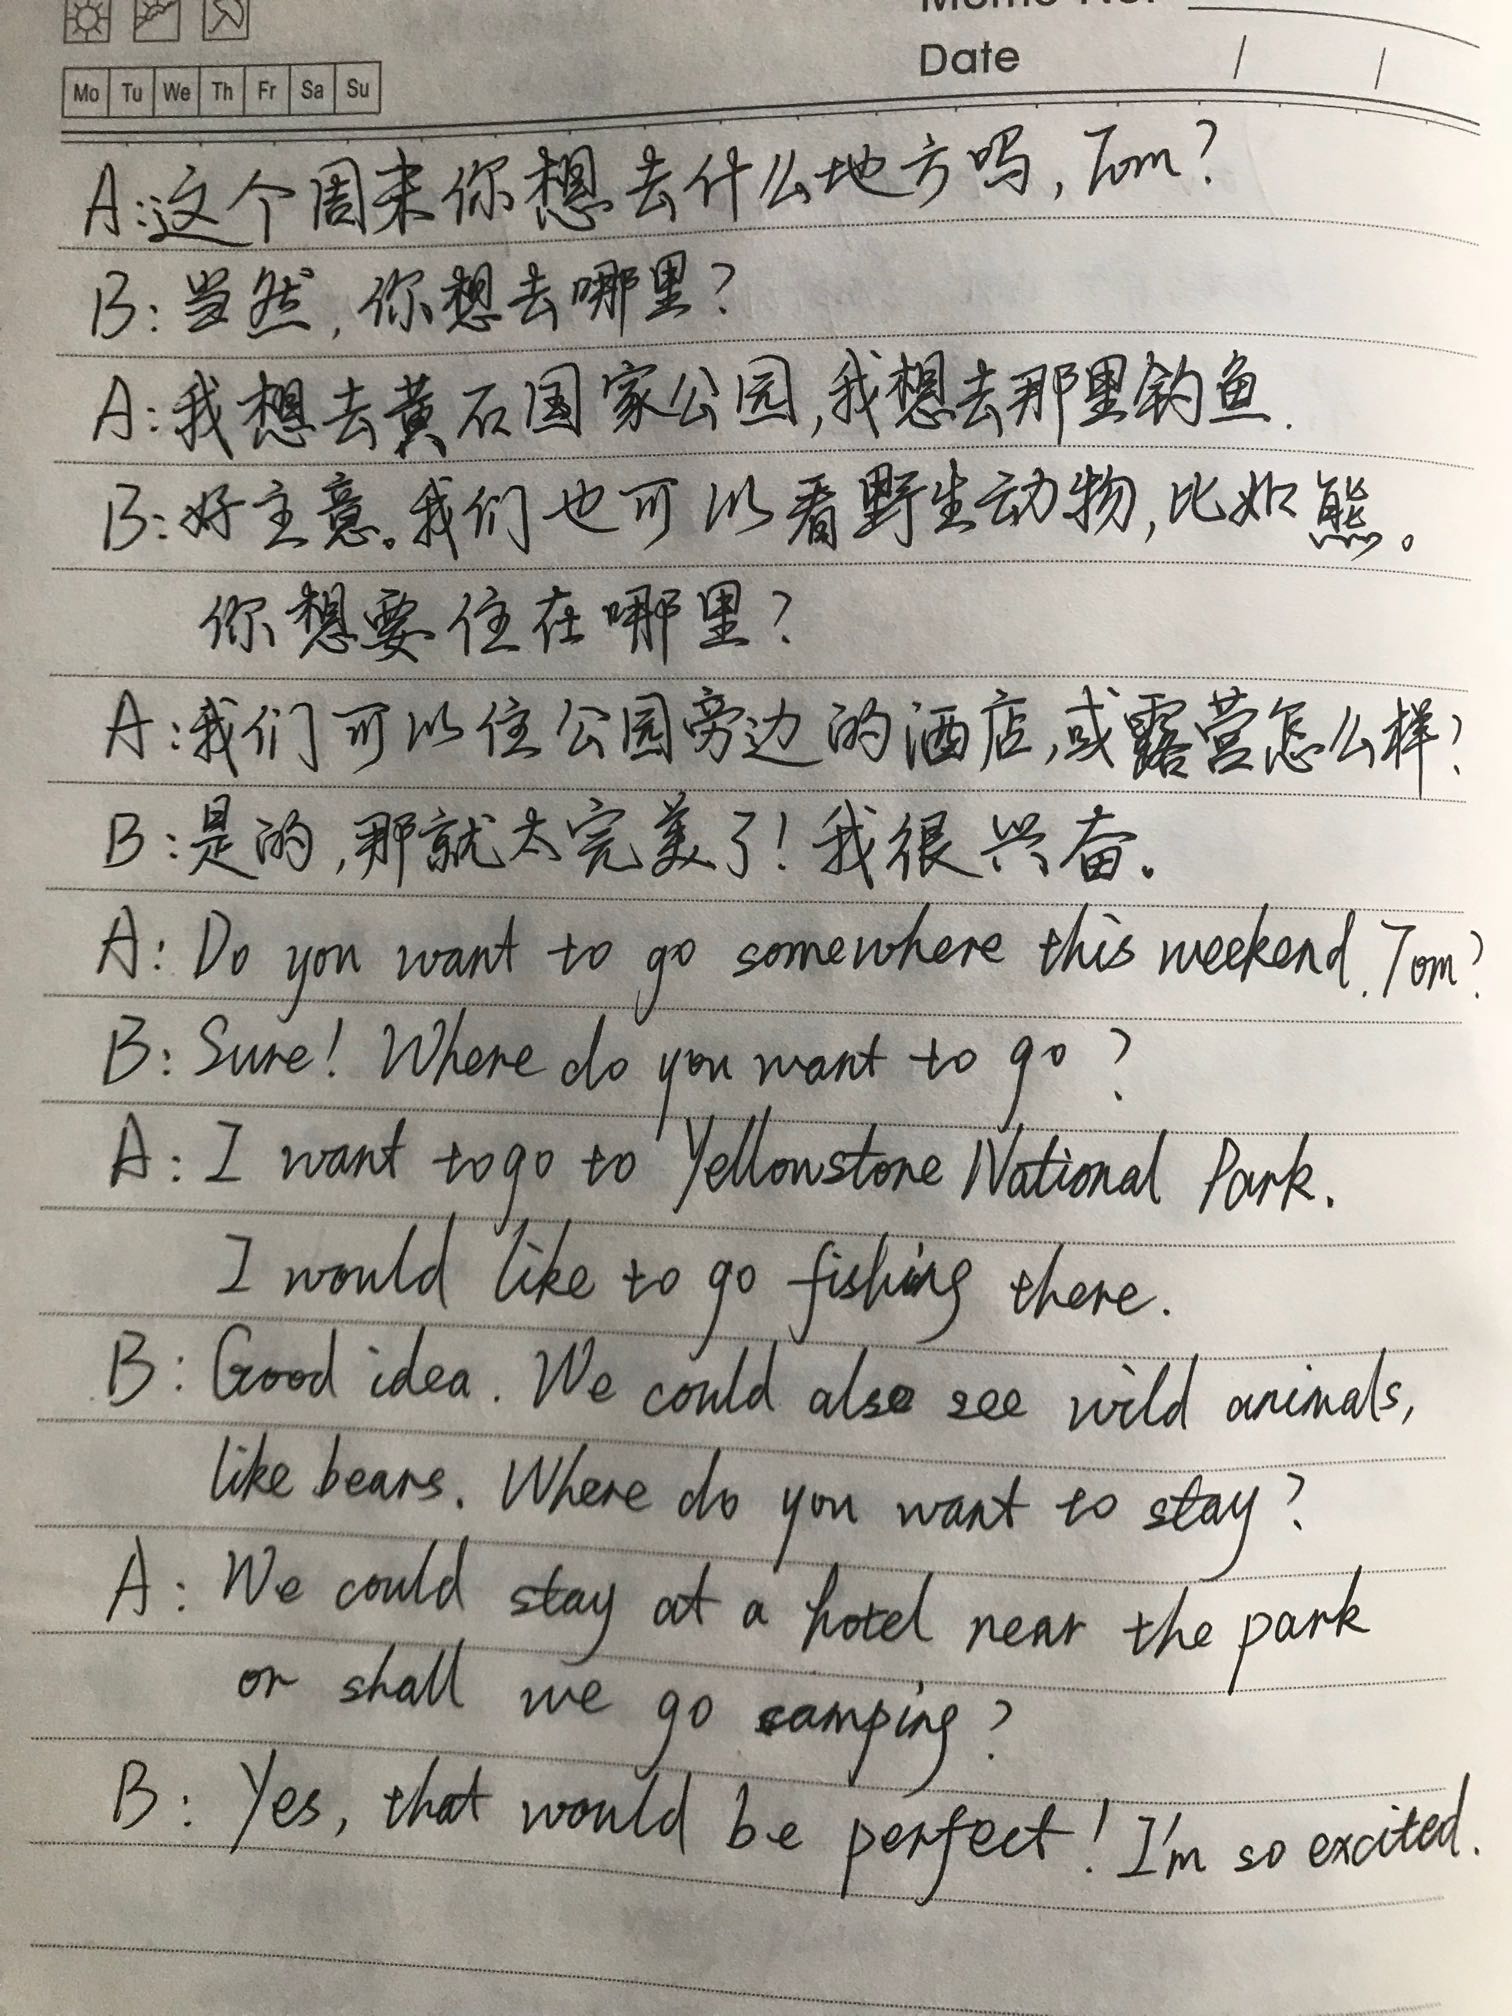 Date / /
Mo Tu We Th Fr Sa Su
A:这个周末你想去什么地方吗, Tom?
B: 当然, 你想去哪里?
A:我想去黄石国家公园,我想去那里钓鱼.
B:好主意。我们也可以看野生动物,比如熊。
你想要住在哪里?
A:我们可以住公园旁边的酒店,或露营怎么样?
B:是的,那就太完美了!我很兴奋。
A: Do you want to go somewhere this weekend, Tom?
B: Sure! Where do you want to go?
A: I want to go to Yellowstone National Park.
I would like to go fishing there.
B: Good idea. We could also see wild animals,
like bears. Where do you want to stay?
A: We could stay at a hotel near the park
or shall we go camping?
B: Yes, that would be perfect! I'm so excited.